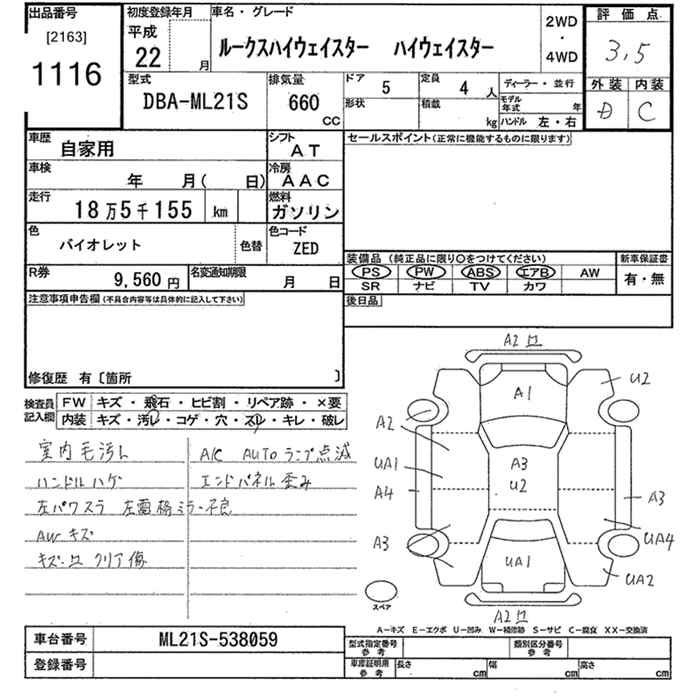 出品番号
[2163]
1116
初度登録年月
平成
22 月
車名・グレード
ルークスハイウェイスター ハイウェイスター
2WD
・
4WD
評価点
3,5
外装 内装
D C
型式
DBA-ML21S
排気量
660
CC
ドア
5
形状
定員
4 人
積載
kg
ディーラー・並行
モデル年式 年
ハンドル 左・右
車歴
自家用
シフト
AT
車検
年 月( 日)
冷房
AAC
走行
18万5千155 km
燃料
ガソリン
色
バイオレット
色替
色コード
ZED
R券
9,560 円
名変通知期限
月 日
セールスポイント(正常に機能するものに限ります)
装備品(純正品に限り○をつけてください)
PS PW ABS エアB AW
SR ナビ TV カワ
新車保証書
有・無
後日品
注意事項申告欄(不具合内容等は具体的に記入して下さい)
修復歴 有〔箇所 〕
検査員記入欄
FW キズ・飛石・ヒビ割・リペア跡・×要
内装 キズ・汚レ・コゲ・穴・スレ・キレ・破レ
室内毛汚レ
ハンドルハゲ
左パワスラ 左電格ミラー不良
AWキズ
キズ・凹 クリア傷
A/C AUTOランプ点滅
エンドパネル歪み
A2凹
A1
U2
A2
UA1
A4
A3
U2
A3
A3
UA4
UA1
UA2
A2凹
スペア
A－キズ E－エクボ U－凹み W－補修跡 S－サビ C－腐食 XX－交換済
車台番号
ML21S-538059
登録番号
型式指定番号
参考
類別区分番号
参考
車庫証明用
参考
長さ cm
幅 cm
高さ cm